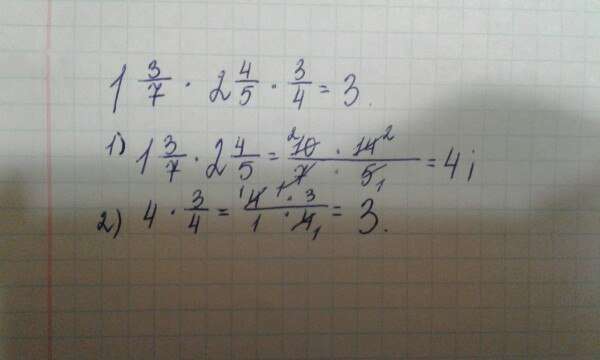 1 3/7 · 2 4/5 · 3/4 = 3.
1) 1 3/7 · 2 4/5 = ²10 · 14² / 1 7 · 5 1 = 4;
2) 4 · 3/4 = ¹4 · 3 / 1 · 4 1 = 3.